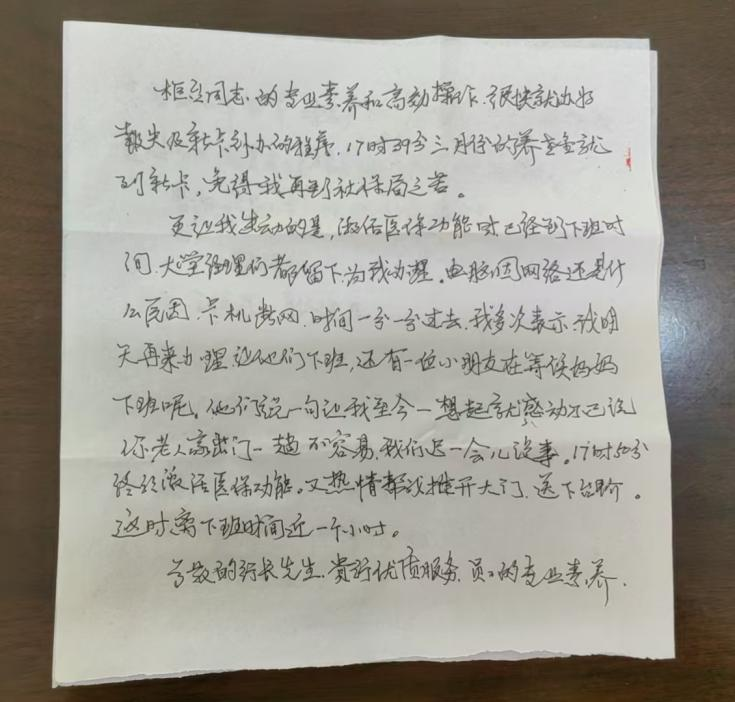 柜员同志的专业素养和高效操作,很快就办好
报失及新卡补办的程序,17时39分三月份的养老金就
到新卡,免得我再到社保局之苦。
更让我生动的是,激活医保功能时已经到下班时
间,大堂经理们都留下为我办理。电脑因网络还是什
么原因,卡机断网,时间一分一分过去,我多次表示,我明
天再来办理,让他们下班,还有一位小朋友在等候妈妈
下班呢。他们说一句让我至今一想起就感动不已说
你老人家出门一趟不容易,我们迟一会儿没事。17时50分
终于激活医保功能。又热情帮我推开大门,送下台阶。
这时离下班时间近一个小时。
尊敬的行长先生,贵行优质服务,员工的专业素养,